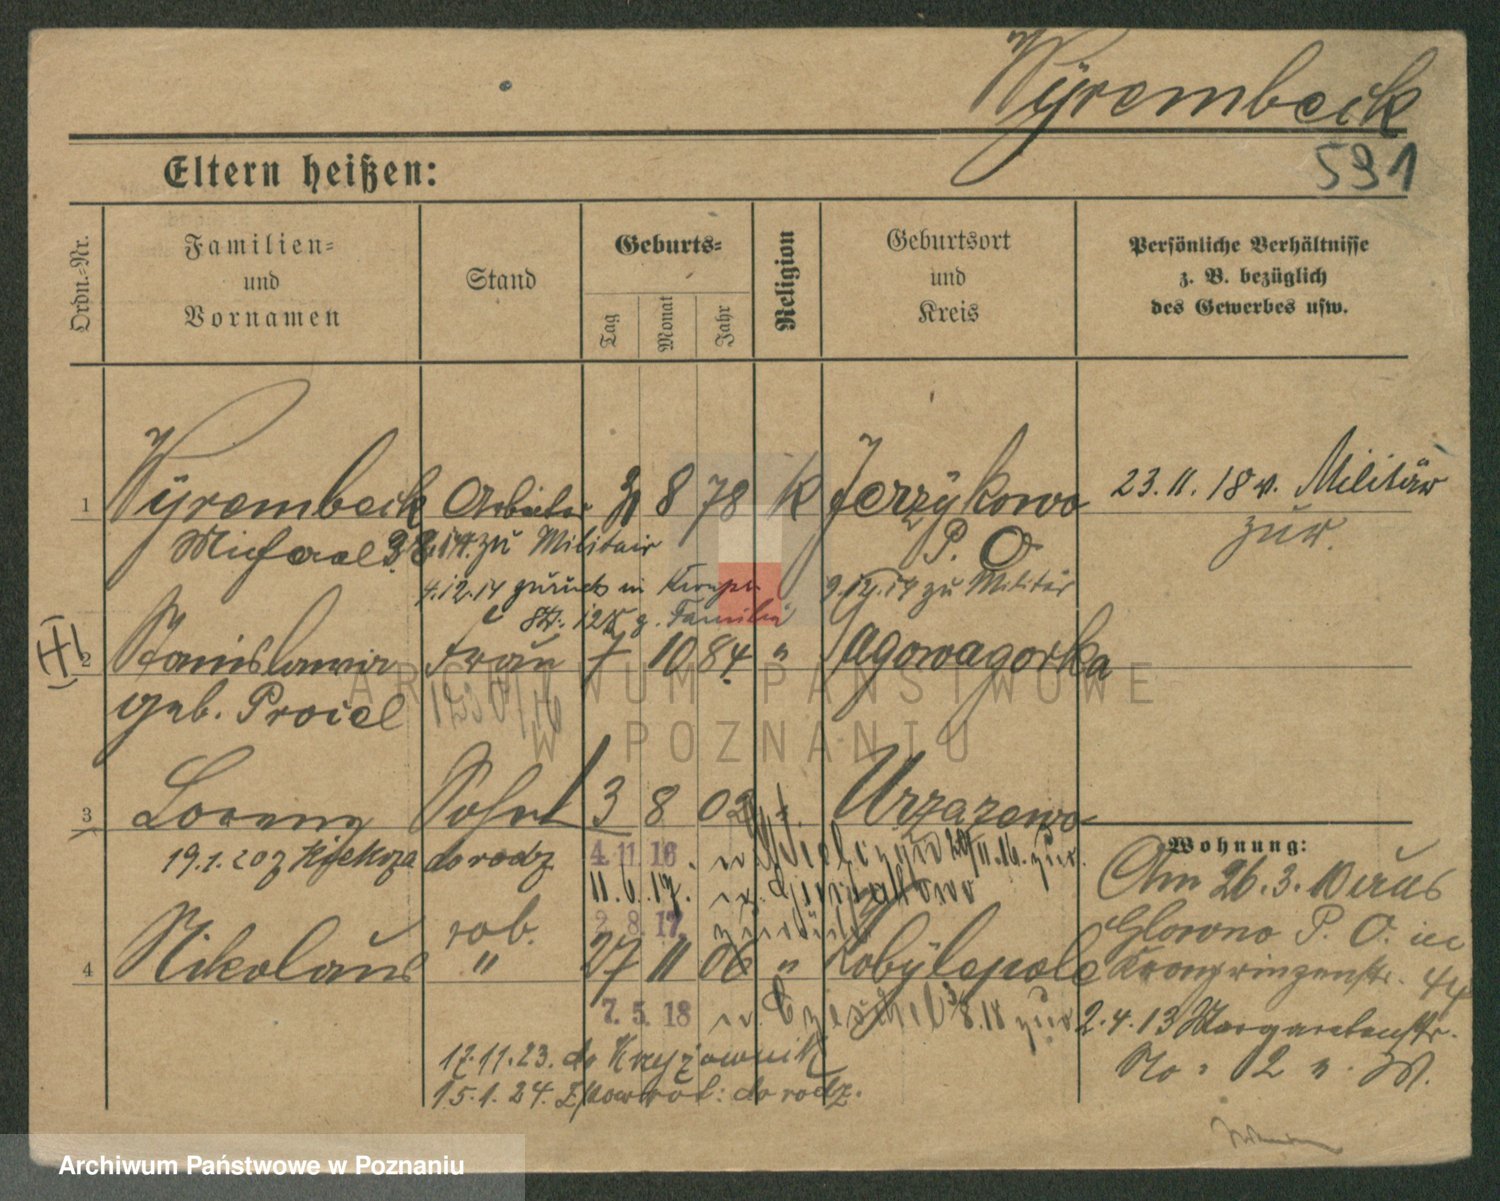 Wyrembeck
591
Eltern heißen:
Ordn.-Nr.
Familien-
und
Vornamen
Stand
Geburts-
Tag
Monat
Jahr
Religion
Geburtsort
und
Kreis
Persönliche Verhältnisse
z. B. bezüglich
des Gewerbes usw.
1 Wyrembeck Arbeiter 8 78 K Jerzykowo 23.11.18 v. Militär
Michael zu Militair P. O. zur.
4.12.14 zurück in 9.12.14 zu Militär
Familie
III
2 Stanislawa Frau 7 10 84 " Jagowagorka
geb. Proicl
3 Lorenz Sohn 3 8 02 Urzazewo
19.1.20 z Kiekrza do rodz 4.11.16 n. 20/11.16. zur.
11.6.17. n.
2.8.17. zurück
rob.
4 Nikolaus " 27 11 06 " Kobylepole
7.5.18 n. 3/8.18 zur
17.11.23. do Krzyżownik
15.1.24. Z powrot: do rodz.
Wohnung:
Am 26.3.10 aus
Glowno P. O. in
Kronprinzenstr. 44
2.4.13 Margaretenstr.
No: 12 n. W.
ARCHIWUM PAŃSTWOWE
W POZNANIU
Archiwum Państwowe w Poznaniu